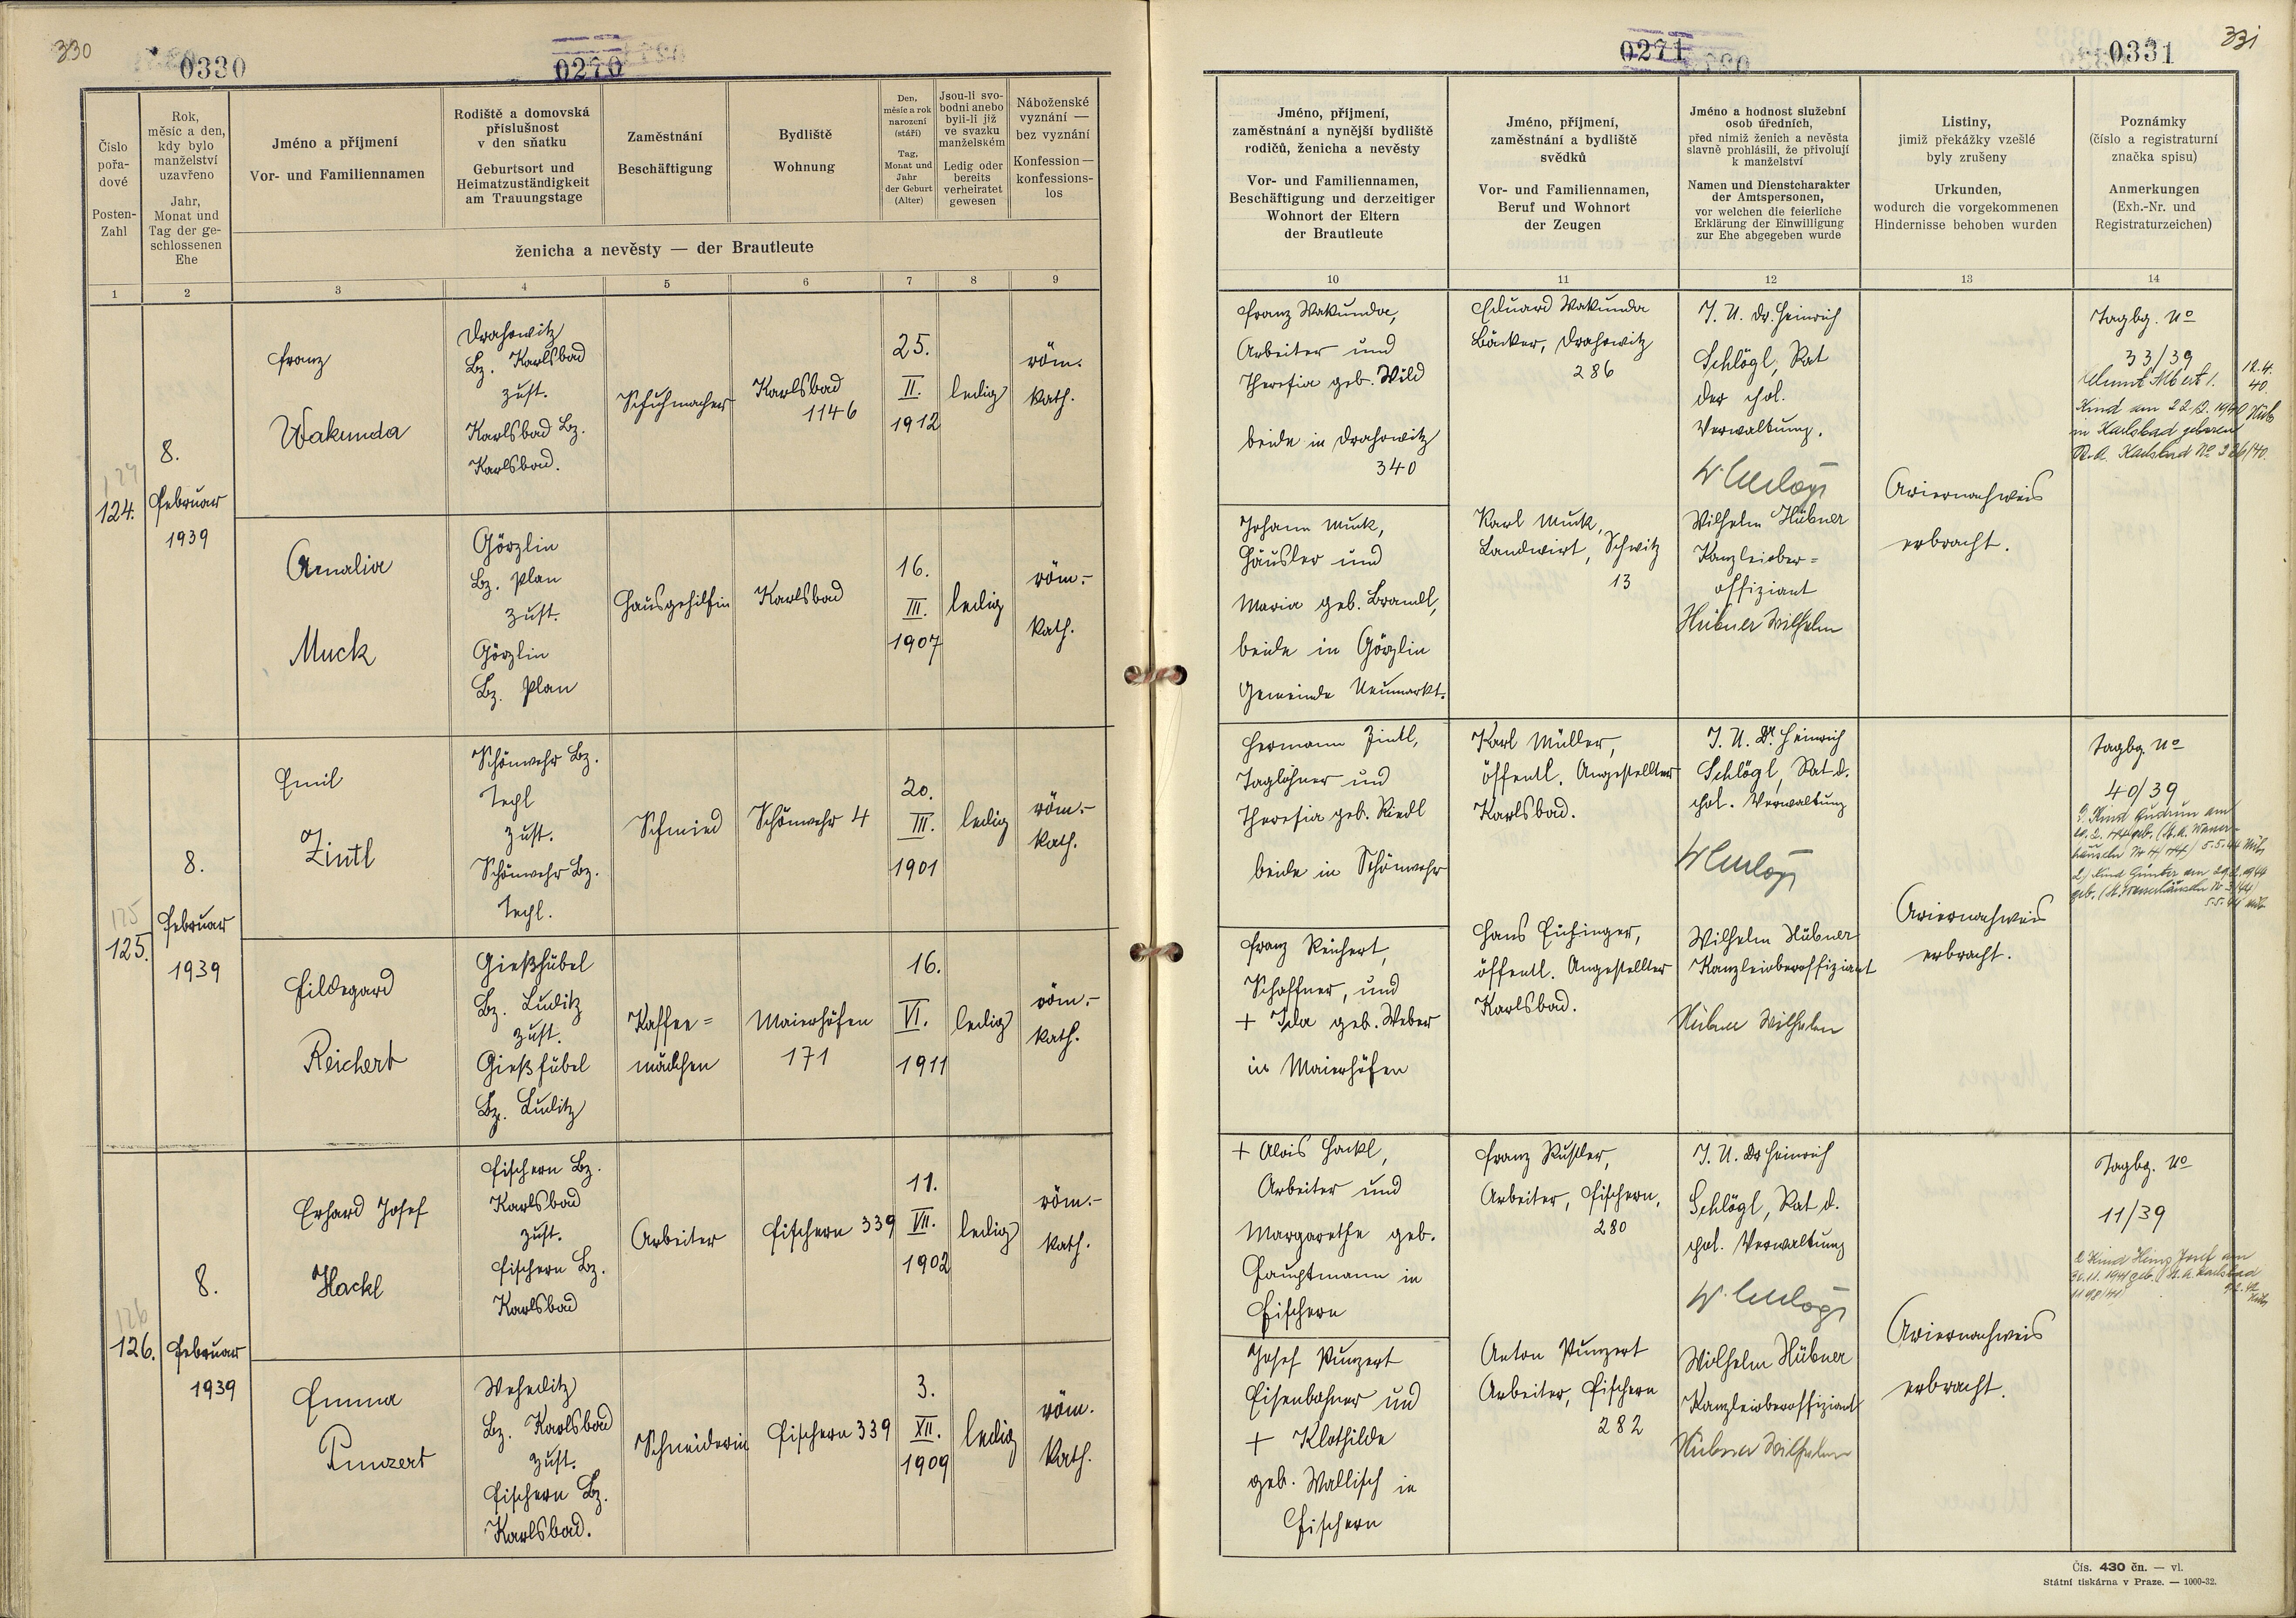 330
0330
0270
Číslo
pořa-
dové
Posten-
Zahl
Rok,
měsíc a den,
kdy bylo
manželství
uzavřeno
Jahr,
Monat und
Tag der ge-
schlossenen
Ehe
Jméno a příjmení
Vor- und Familiennamen
Rodiště a domovská
příslušnost
v den sňatku
Geburtsort und
Heimatzuständigkeit
am Trauungstage
Zaměstnání
Beschäftigung
Bydliště
Wohnung
Den,
měsíc a rok
narození
(stáří)
Tag,
Monat und
Jahr
der Geburt
(Alter)
Jsou-li svo-
bodni anebo
byli-li již
ve svazku
manželském
Ledig oder
bereits
verheiratet
gewesen
Náboženské
vyznání —
bez vyznání
Konfession —
konfessions-
los
ženicha a nevěsty — der Brautleute
1 2 3 4 5 6 7 8 9
124
124.
8.
Februar
1939
Franz
Wakunda
Drahowitz
Bz. Karlsbad
zust.
Karlsbad Bz.
Karlsbad.
Schuhmacher
Karlsbad
1146
25.
II.
1912
ledig
röm.
kath.
Amalia
Muck
Görzlin
Bz. Plan
zust.
Görzlin
Bz. Plan
Hausgehilfin
Karlsbad
16.
III.
1907
ledig
röm.-
kath.
125
125.
8.
Februar
1939
Emil
Zintl
Schönwehr Bz.
Tepl
zust.
Schönwehr Bz.
Tepl.
Schmied
Schönwehr 4
20.
III.
1901
ledig
röm.-
kath.
Hildegard
Reichert
Gießhübel
Bz. Luditz
zust.
Gießhübel
Bz. Luditz
Kaffee=
mädchen
Maierhöfen
171
16.
VI.
1911
ledig
röm.-
kath.
126
126.
8.
Februar
1939
Erhard Josef
Hackl
Fischern Bz.
Karlsbad
zust.
Fischern Bz.
Karlsbad
Arbeiter
Fischern 339
11.
VII.
1902
ledig
röm.-
kath.
Emma
Punzert
Weheditz
Bz. Karlsbad
zust.
Fischern Bz.
Karlsbad.
Schneiderin
Fischern 339
3.
XII.
1909
ledig
röm.
kath.
331
0271
0331
Jméno, příjmení,
zaměstnání a nynější bydliště
rodičů, ženicha a nevěsty
Vor- und Familiennamen,
Beschäftigung und derzeitiger
Wohnort der Eltern
der Brautleute
Jméno, příjmení,
zaměstnání a bydliště
svědků
Vor- und Familiennamen,
Beruf und Wohnort
der Zeugen
Jméno a hodnost služební
osob úředních,
před nimiž ženich a nevěsta
slavně prohlásili, že přivolují
k manželství
Namen und Dienstcharakter
der Amtspersonen,
vor welchen die feierliche
Erklärung der Einwilligung
zur Ehe abgegeben wurde
Listiny,
jimiž překážky vzešlé
byly zrušeny
Urkunden,
wodurch die vorgekommenen
Hindernisse behoben wurden
Poznámky
(číslo a registraturní
značka spisu)
Anmerkungen
(Exh.-Nr. und
Registraturzeichen)
10 11 12 13 14
Franz Wakunda,
Arbeiter und
Theresia geb. Wild
beide in Drahowitz
340
Eduard Wakunda
Bäcker, Drahowitz
286
J. U. Dr. Heinrich
Schlögl, Rat
der pol.
Verwaltung.
Ariernachweis
erbracht.
Tagbg. No
33/39
12.4.
40.
Kind am 22.2.1940
in Karlsbad geboren
Johann Muck,
Häusler und
Maria geb. Brandl,
beide in Görzlin
Gemeinde Neumarkt.
Karl Muck,
Landwirt, Schwitz
13
Wilhelm Hübner
Kanzleiober=
offiziant
Hübner Wilhelm
Hermann Zintl,
Taglöhner und
Theresia geb. Riedl
beide in Schönwehr
Karl Müller,
öffentl. Angestellter
Karlsbad.
J. U. Dr. Heinrich
Schlögl, Rat d.
pol. Verwaltung
Ariernachweis
erbracht.
Tagbg. No
40/39
Kind Gudrun am
2) Kind Günter am 29.2.1944
Franz Reichert,
Schaffner, und
+ Ida geb. Weber
in Maierhöfen
Hans Eichinger,
öffentl. Angestellter
Karlsbad.
Wilhelm Hübner
Kanzleioberoffiziant
Hübner Wilhelm
+ Alois Hackl,
Arbeiter und
Margarethe geb.
Hauptmann in
Fischern
Franz Rustler,
Arbeiter, Fischern,
280
J. U. Dr Heinrich
Schlögl, Rat d.
pol. Verwaltung
Ariernachweis
erbracht.
Tagbg. No
11/39
Kind Heinz Josef am
30.11.1941 geb. St. A. Karlsbad
Josef Punzert
Eisenbahner und
+ Klothilde
geb. Wallisch in
Fischern
Anton Punzert
Arbeiter, Fischern
282
Wilhelm Hübner
Kanzleioberoffiziant
Hübner Wilhelm
Čís. 430 čn. — vl.
Státní tiskárna v Praze. — 1000-32.